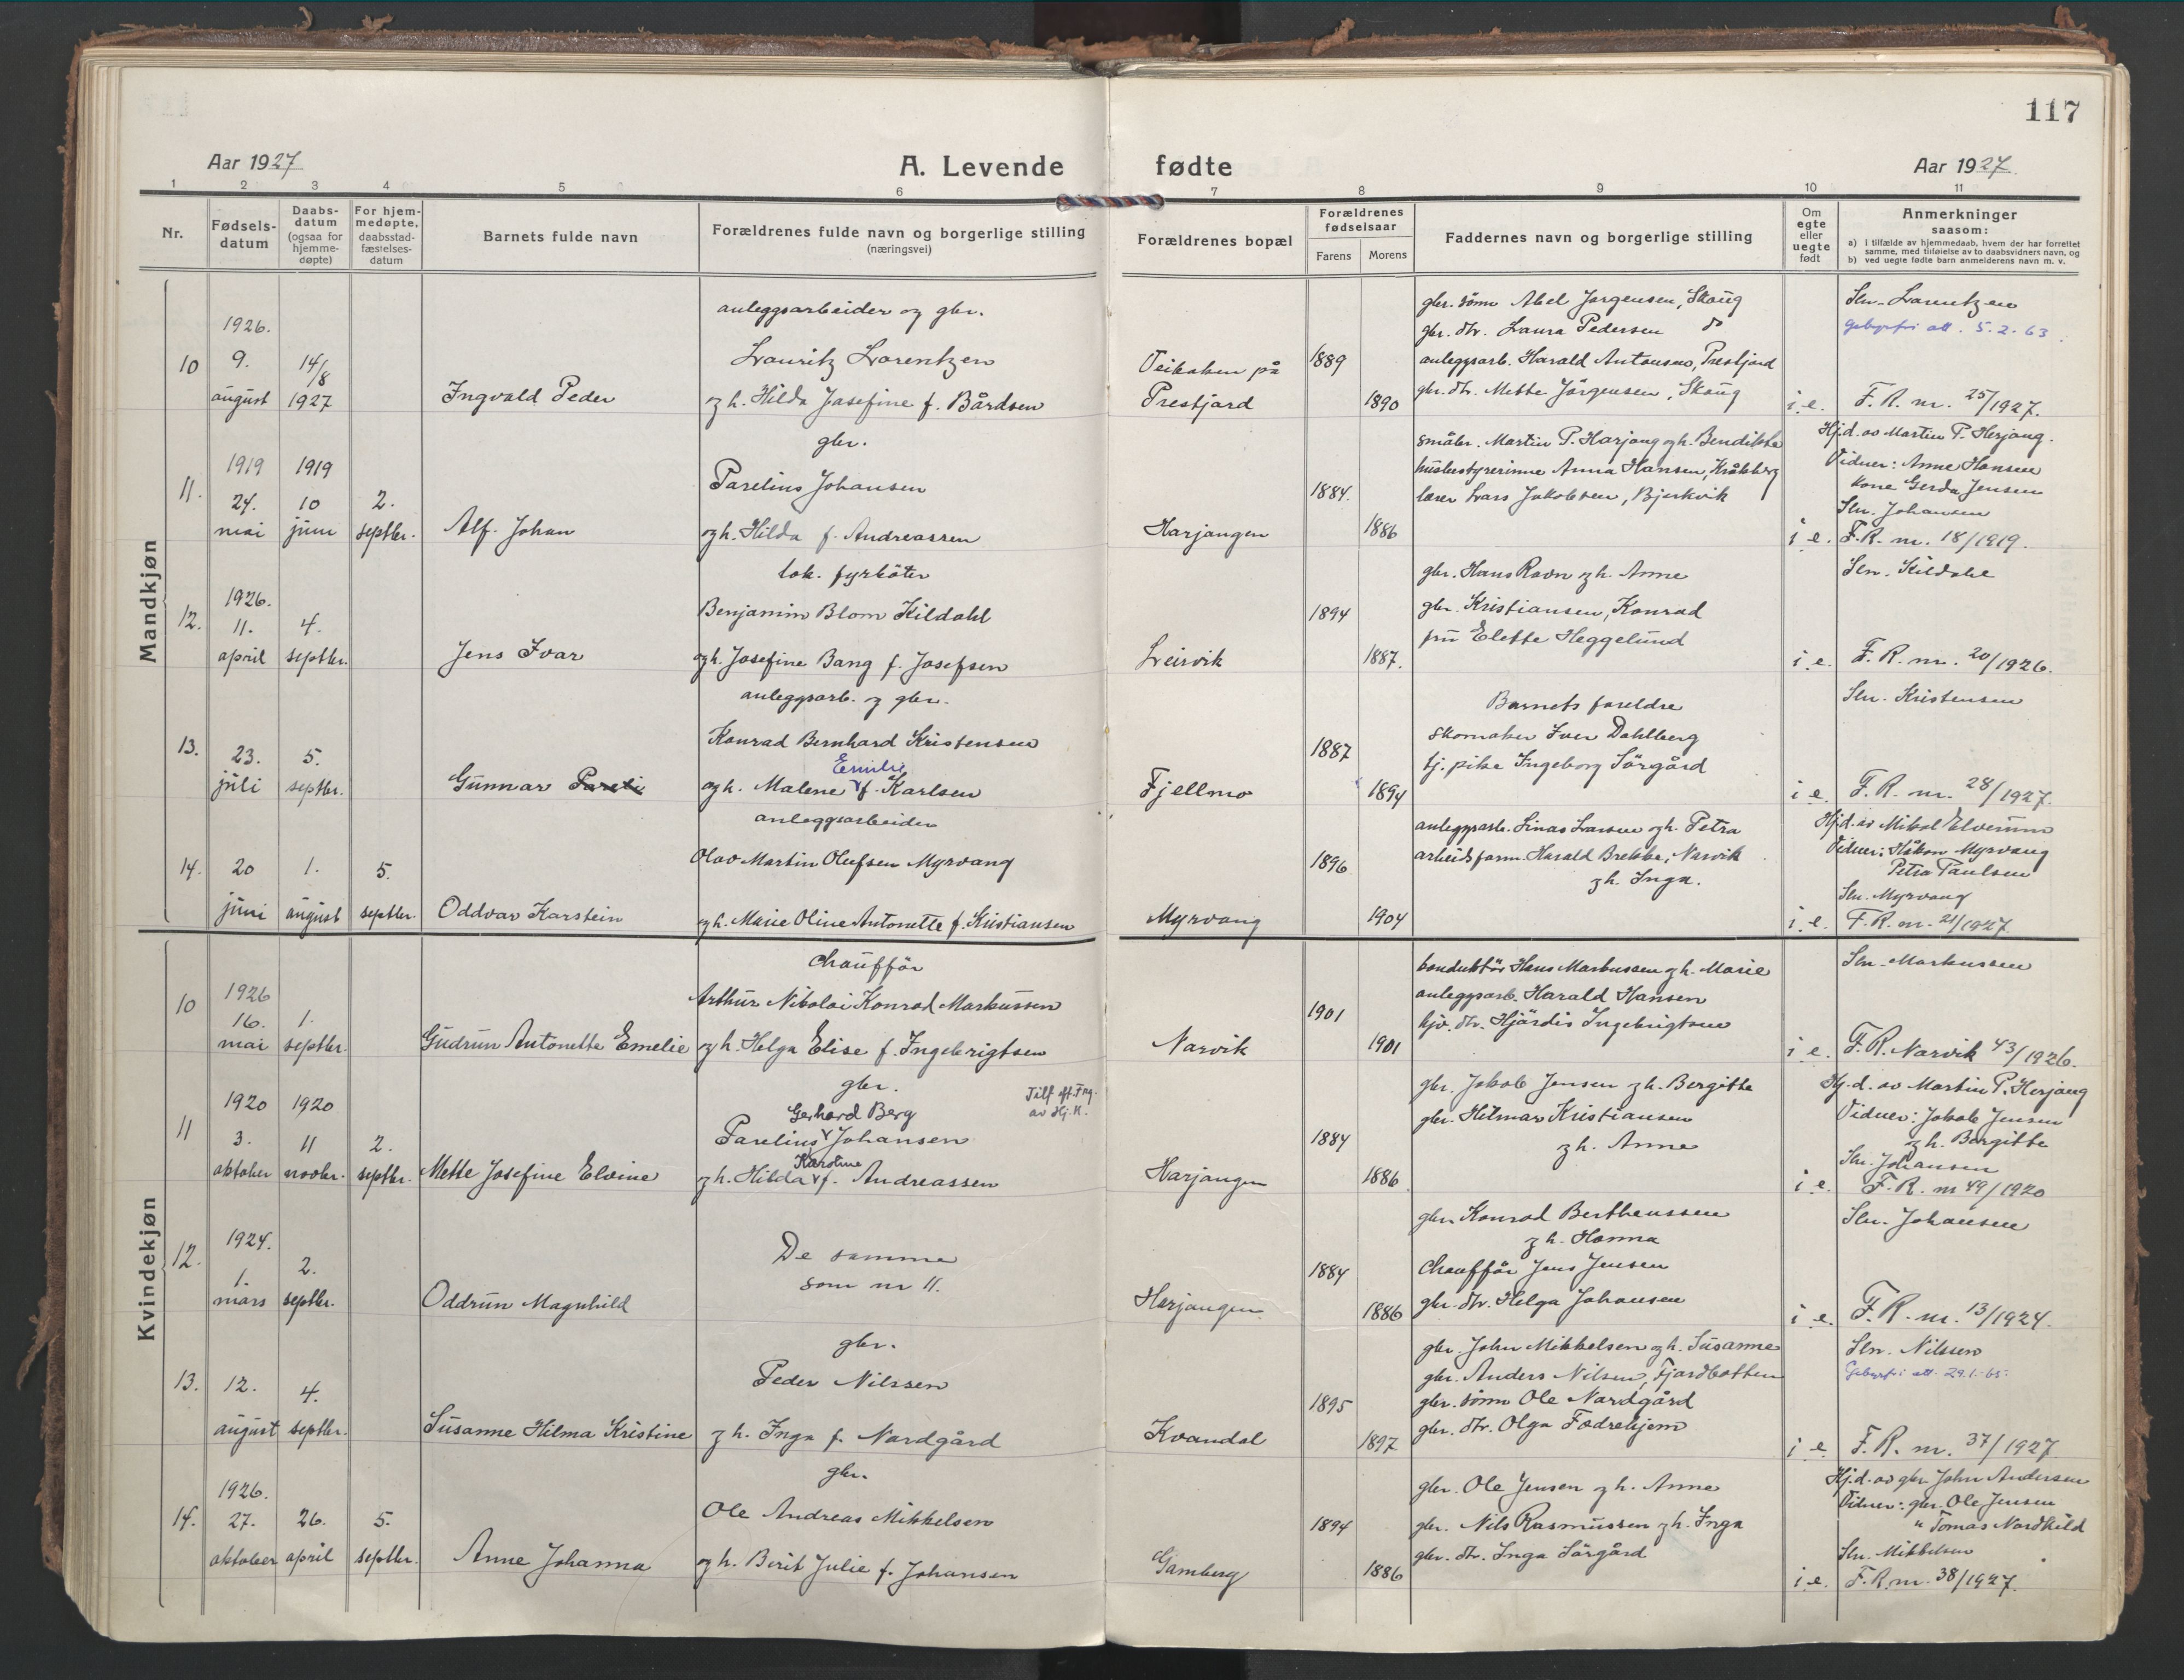 117
Aar 1927
A. Levende fødte
Aar 1927
1 2 3 4 5 6 7 8 9 10 11
Nr.
Fødsels-
datum
Daabs-
datum
(ogsaa for
hjemme-
døpte)
For hjem-
medøpte,
daabsstad-
fæstelses-
datum
Barnets fulde navn
Forældrenes fulde navn og borgerlige stilling
(næringsvei)
Forældrenes bopæl
Forældrenes
fødselsaar
Farens
Morens
Faddernes navn og borgerlige stilling
Om
egte
eller
uegte
født
Anmerkninger
saasom:
a) i tilfælde av hjemmedaab, hvem der har forrettet
samme, med tilføielse av to daabsvidners navn, og
b) ved uegte fødte barn anmelderens navn m. v.
Mandkjøn
10
1926.
9.
august
14/8
1927
Ingvald Peder
anleggsarbeider og gbr.
Lauritz Lorentzen
og h. Hilda Josefine f. Bårdsen
Veibaken på
Prestjord
1889
1890
gbr. sönn Abel Jørgensen, Skoug
gbr. dtr. Laura Pedersen do
anleggsarb. Harald Antonsen, Prestjord
gbr. dtr. Mette Jörgensen, Skoug
i. e.
Sln. Lorentzen
Gebyrfri att. 5.2.63.
F. R. nr. 25/1927.
11.
1919
24.
mai
1919
10
juni
2.
septbr.
Alf Johan
gbr.
Parelius Johansen
og h. Hilda f. Andreassen
Harjangen
1884.
1886
småbr. Martin P. Harjang og h. Bendikte
husbestyrerinne Anna Hansen, Kråkberg
lærer Lars Jakobsen, Bjerkvik
i e.
Hj.d. av Martin P. Herjang.
Vidner: Anne Hansen
kone Gerda Jensen
Sln. Johansen
F. R. nr. 18/1919.
12.
1926.
11.
april
4.
septbr.
Jens Ivar
lok. fyrböter
Benjamin Blom Kildahl
og h. Josefine Bang f. Josefsen
Leirvik
1894
1887.
gbr. Hans Ravn og h. Anne
gbr. Kristiansen, Konrad
fru Elette Heggelund
i e.
Sln. Kildahl
F. R. nr. 20/1926.
13.
23.
juli
5.
septbr.
Gunnar
anleggsarb. og gbr.
Konrad Bernhard Kristensen
Emilie
og h. Malene f. Karlsen
Fjellmo
1887
1894
Barnets foreldre
Skomaker Iver Dahlberg
tj. pike Ingeborg Sörgård
i e.
Sln. Kristensen
F. R. nr. 28/1927.
14.
20
juni
1.
august
5.
septbr.
Oddvar Karstein
anleggsarbeider
Olav Martin Olufsen Myrvang
og h. Marie Oline Antonette f. Kristiansen
Myrvang
1896
1904
anleggsarb. Linas Larsen og h. Petra
arbeidsform. Harald Brekke, Narvik
og h. Inga.
i e.
Hj.d. av Mikal Elverum
Vidner: Håkon Myrvang
Petra Paulsen
Sln. Myrvang
F. R. nr. 21/1927
Kvindekjøn
10
1926
16.
mai
1.
septbr.
Gudrun Antonette Emelie
Chaufför
Arthur Nikolai Konrad Markussen
og h. Helga Elise f. Ingebrigtsen
Narvik
1901
1901
konduktör Hans Markussen og h. Marie
anleggsarb. Harald Hansen
hjv. dtr. Hjördis Ingebrigtsen
i e.
Sln. Markussen
F. R. Narvik 43/1926.
11
1920
3.
oktober
1920
11
novbr.
2.
septbr.
Mette Josefine Elvine
gbr.
Gerhard Berg
Parelius Johansen
Karoline
og h. Hilda f. Andreassen
Harjangen
1884
1886
gbr. Jakob Jensen og h. Bergitte
gbr. Hilmar Kristiansen
og h. Anne
i e.
Hj.d. av Martin P. Herjang
Vidner: Jakob Jensen
og h. Bergitte
Sln. Johansen
F. R. nr 49/1920
12.
1924.
1.
mars
2.
septbr.
Oddrun Magnhild
De samme
som nr 11.
Harjangen
1884
1886
gbr. Konrad Berthenssen
og h. Hanna
Chaufför Jens Jensen
gbr. dtr. Helga Johansen
i e.
Sln. Johansen
F. R. nr. 13/1924.
13.
12.
august
4.
septbr.
Susanne Hilma Kristine
gbr.
Peder Nilssen
og h. Inga f. Nordgård
Kvandal
1895
1897
gbr. John Mikkelsen og h. Susanne
gbr. Anders Nilsen, Fjordbotten
gbr. sönn Ole Nordgård
gbr. dtr. Olga Fodrehjem
i e
Sln. Nilssen
Gebyrfri att. 29.1.-65.
F. R. nr. 37/1927
14.
1926.
27.
oktober
26.
april
5.
septbr.
Anne Johanna
gbr.
Ole Andreas Mikkelsen
og h. Berit Julie f. Johansen
Gamberg
1894
1886
gbr. Ole Jensen og h. Anne
gbr. Nils Rasmussen og h. Inga
gbr. dtr. Inga Sörgård
i. e.
Hj.d. av gbr. John Andersen
Vidner: gbr. Ole Jensen
" Tomas Nordkild
Sln. Mikkelsen
F. R. nr. 38/1927.